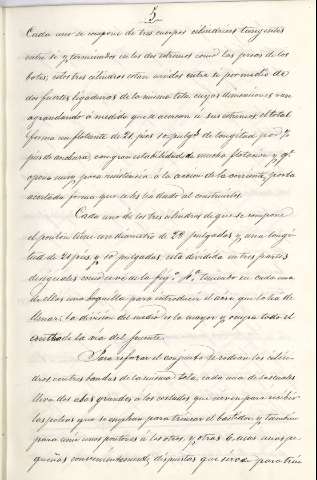 5
Cada uno se compone de tres cuerpos cilindricos tangentes
entre sí y terminados en los dos estremos como las proas de los
botes, estos tres cilindros estan unidos entre si por medio de
dos fuertes ligaduras de la misma tela cuyas dimensiones van
agrandando á medida que se acercan a sus estremos el total
forma un flotante de 21 pies 10 pulgs. de longitud por
pies de anchura, con gran estabilidad, de mucha flotacion y qe.
opone muy poca resistencia á la accion de la corriente por la
acertada forma que se les ha dado al construirlos.
Cada uno de los tres cilindros de que se compone
el ponton tiene un diametro de 28 pulgadas y una longi-
tud de 21 pies y 10 pulgadas, está dividido en tres partes
desiguales como se ve en la figa. teniendo en cada una
de ellas una boquilla para introducir el aire que los ha de
llenar; la division del medio es la mayor y ocupa todo el
centro de la via del puente.
Para reforzar el conjunto se rodean los cilin-
dros con tres bandas de la misma tela, cada una de las cuales
lleva dos asas grandes á los costados que sirven para recibir
los palos que se emplean para trincar el bastidor, y tambien
para unir unos pontones á los otros, y otras 6 mas unas pe-
queñas convenientemente dispuestas que sirven para trin